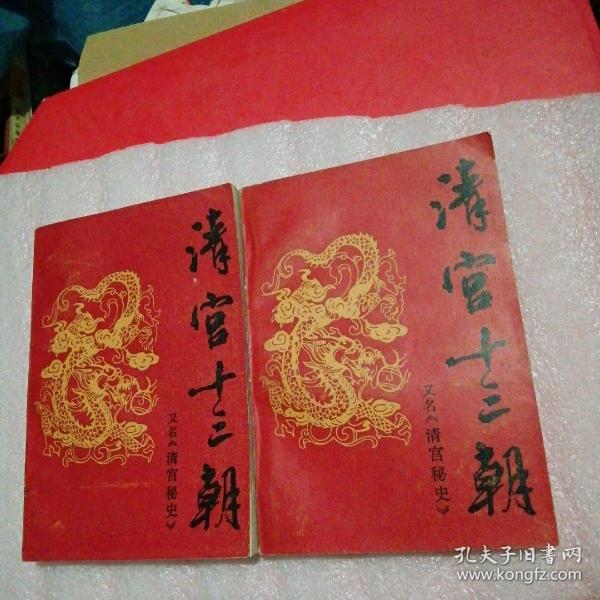 清宫十三朝
又名《清宫秘史》
清宫十三朝
又名《清宫秘史》
孔夫子旧书网
www.kongfz.com